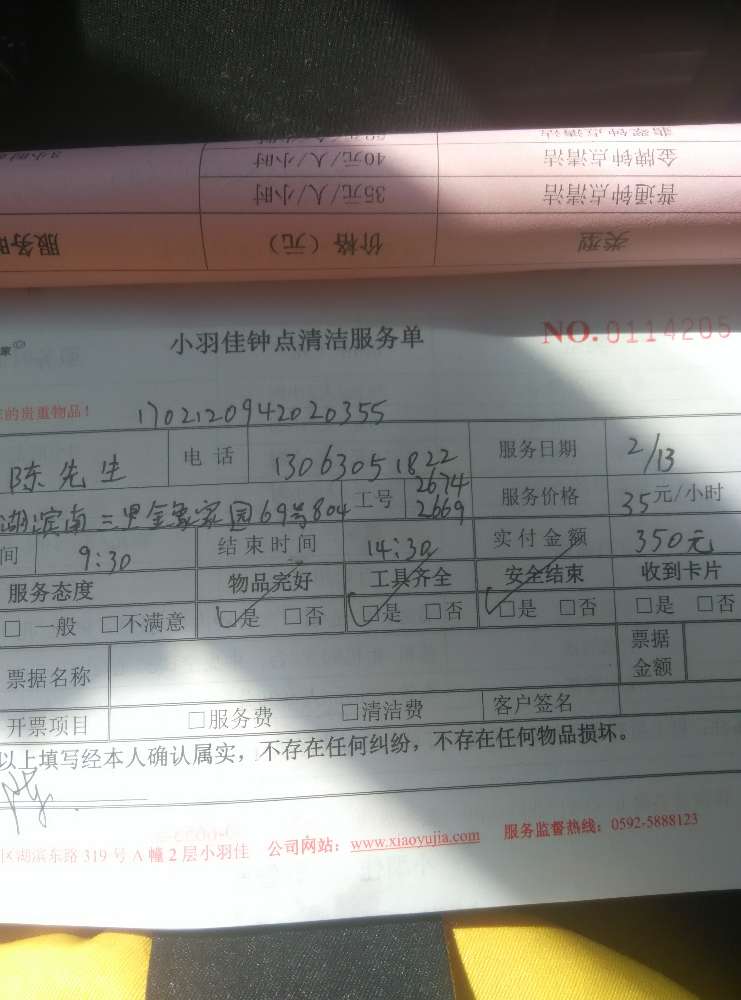 翡翠钟点清洁
金牌钟点清洁 40元/人/小时
普通钟点清洁 35元/人/小时
类型 价格（元） 服务时
小羽佳钟点清洁服务单 NO. 0114205
家
的贵重物品！ 1702120942020355
陈先生 电话 13063051822 服务日期 2/13
湖滨南三里金象家园69号804 工号 2674 2669 服务价格 35元/小时
间 9:30 结束时间 14:30 实付金额 350元
服务态度 物品完好 工具齐全 安全结束 收到卡片
□一般 □不满意 □是 □否 □是 □否 □是 □否 □是 □否
票据名称 票据金额
开票项目 □服务费 □清洁费 客户签名
以上填写经本人确认属实，不存在任何纠纷，不存在任何物品损坏。
区湖滨东路319号A幢2层小羽佳 公司网站：www.xiaoyujia.com 服务监督热线：0592-5888123